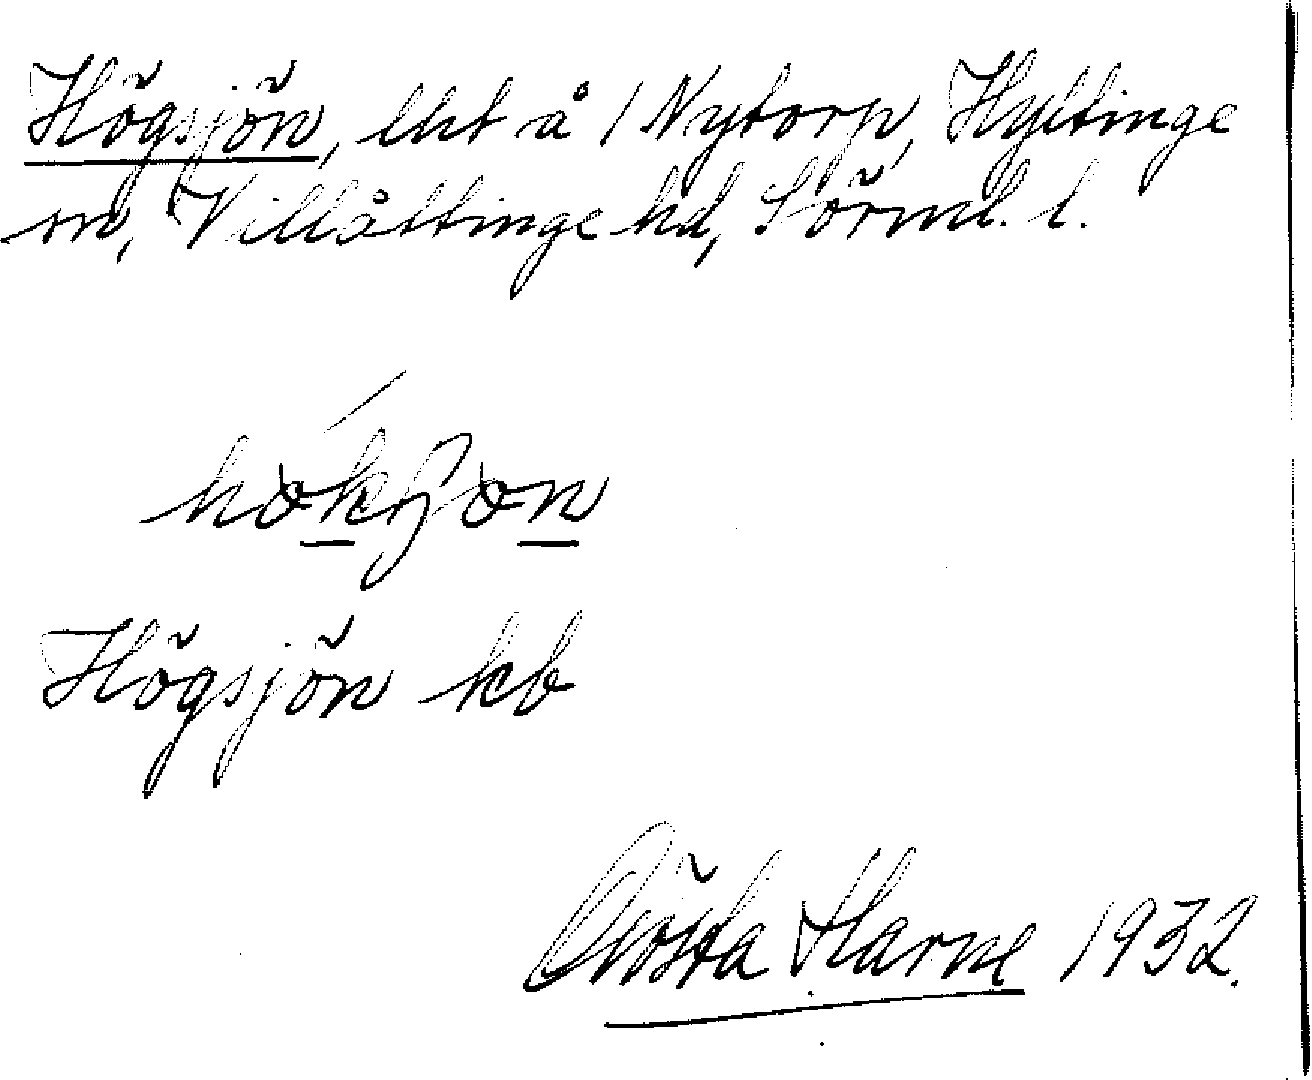 Högsjön, lht å 1 Nytorp, Hyltinge
sn, Villåttinge hd, Sörml. l.
Högsjön kb
Gösta Harne 1932.